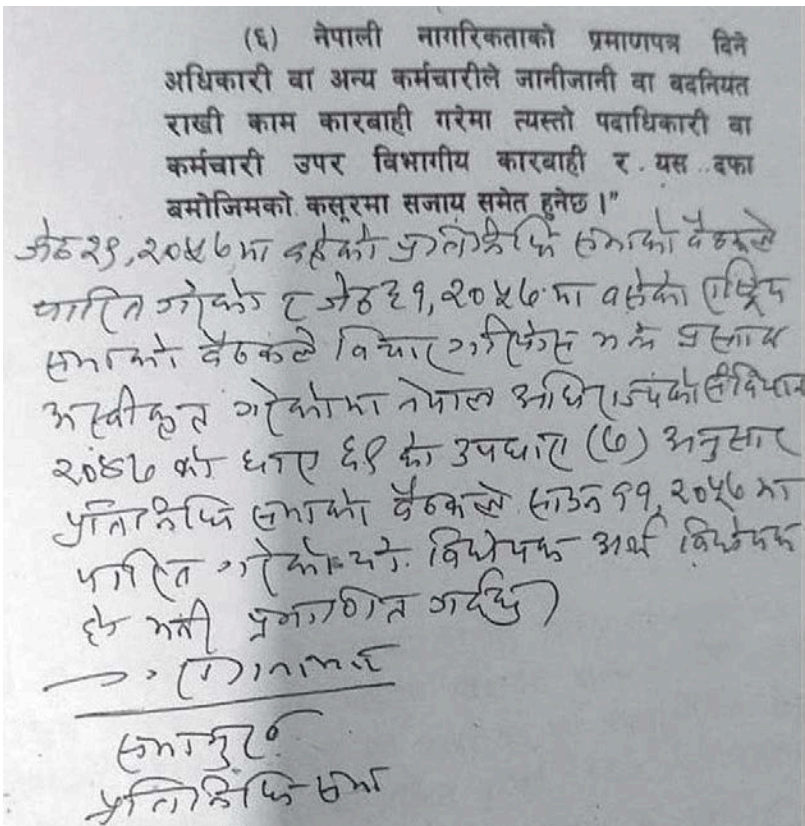 (६) नेपाली नागरिकताको प्रमाणपत्र दिने
अधिकारी वा अन्य कर्मचारीले जानीजानी वा बदनियत
राखी काम कारबाही गरेमा त्यस्तो पदाधिकारी वा
कर्मचारी उपर विभागीय कारबाही र यस दफा
बमोजिमको कसूरमा सजाय समेत हुनेछ ।"
जेठ २९, २०५७ मा बसेको प्रतिनिधि सभाको बैठकले
पारित गरेको र जेठ ३१, २०५७ मा बसेको राष्ट्रिय
सभाको बैठकले विचार गरियोस् भन्ने प्रस्ताव
अस्वीकृत गरेकोमा नेपाल अधिराज्यको संविधान
२०४७ को धारा ६९ को उपधारा (७) अनुसार
प्रतिनिधि सभाको बैठकले साउन ११, २०५७ मा
पारित गरेको यो विधेयक अर्थ विधेयक
हो भनी प्रमाणित गर्दछु
सभामुख
प्रतिनिधि सभा